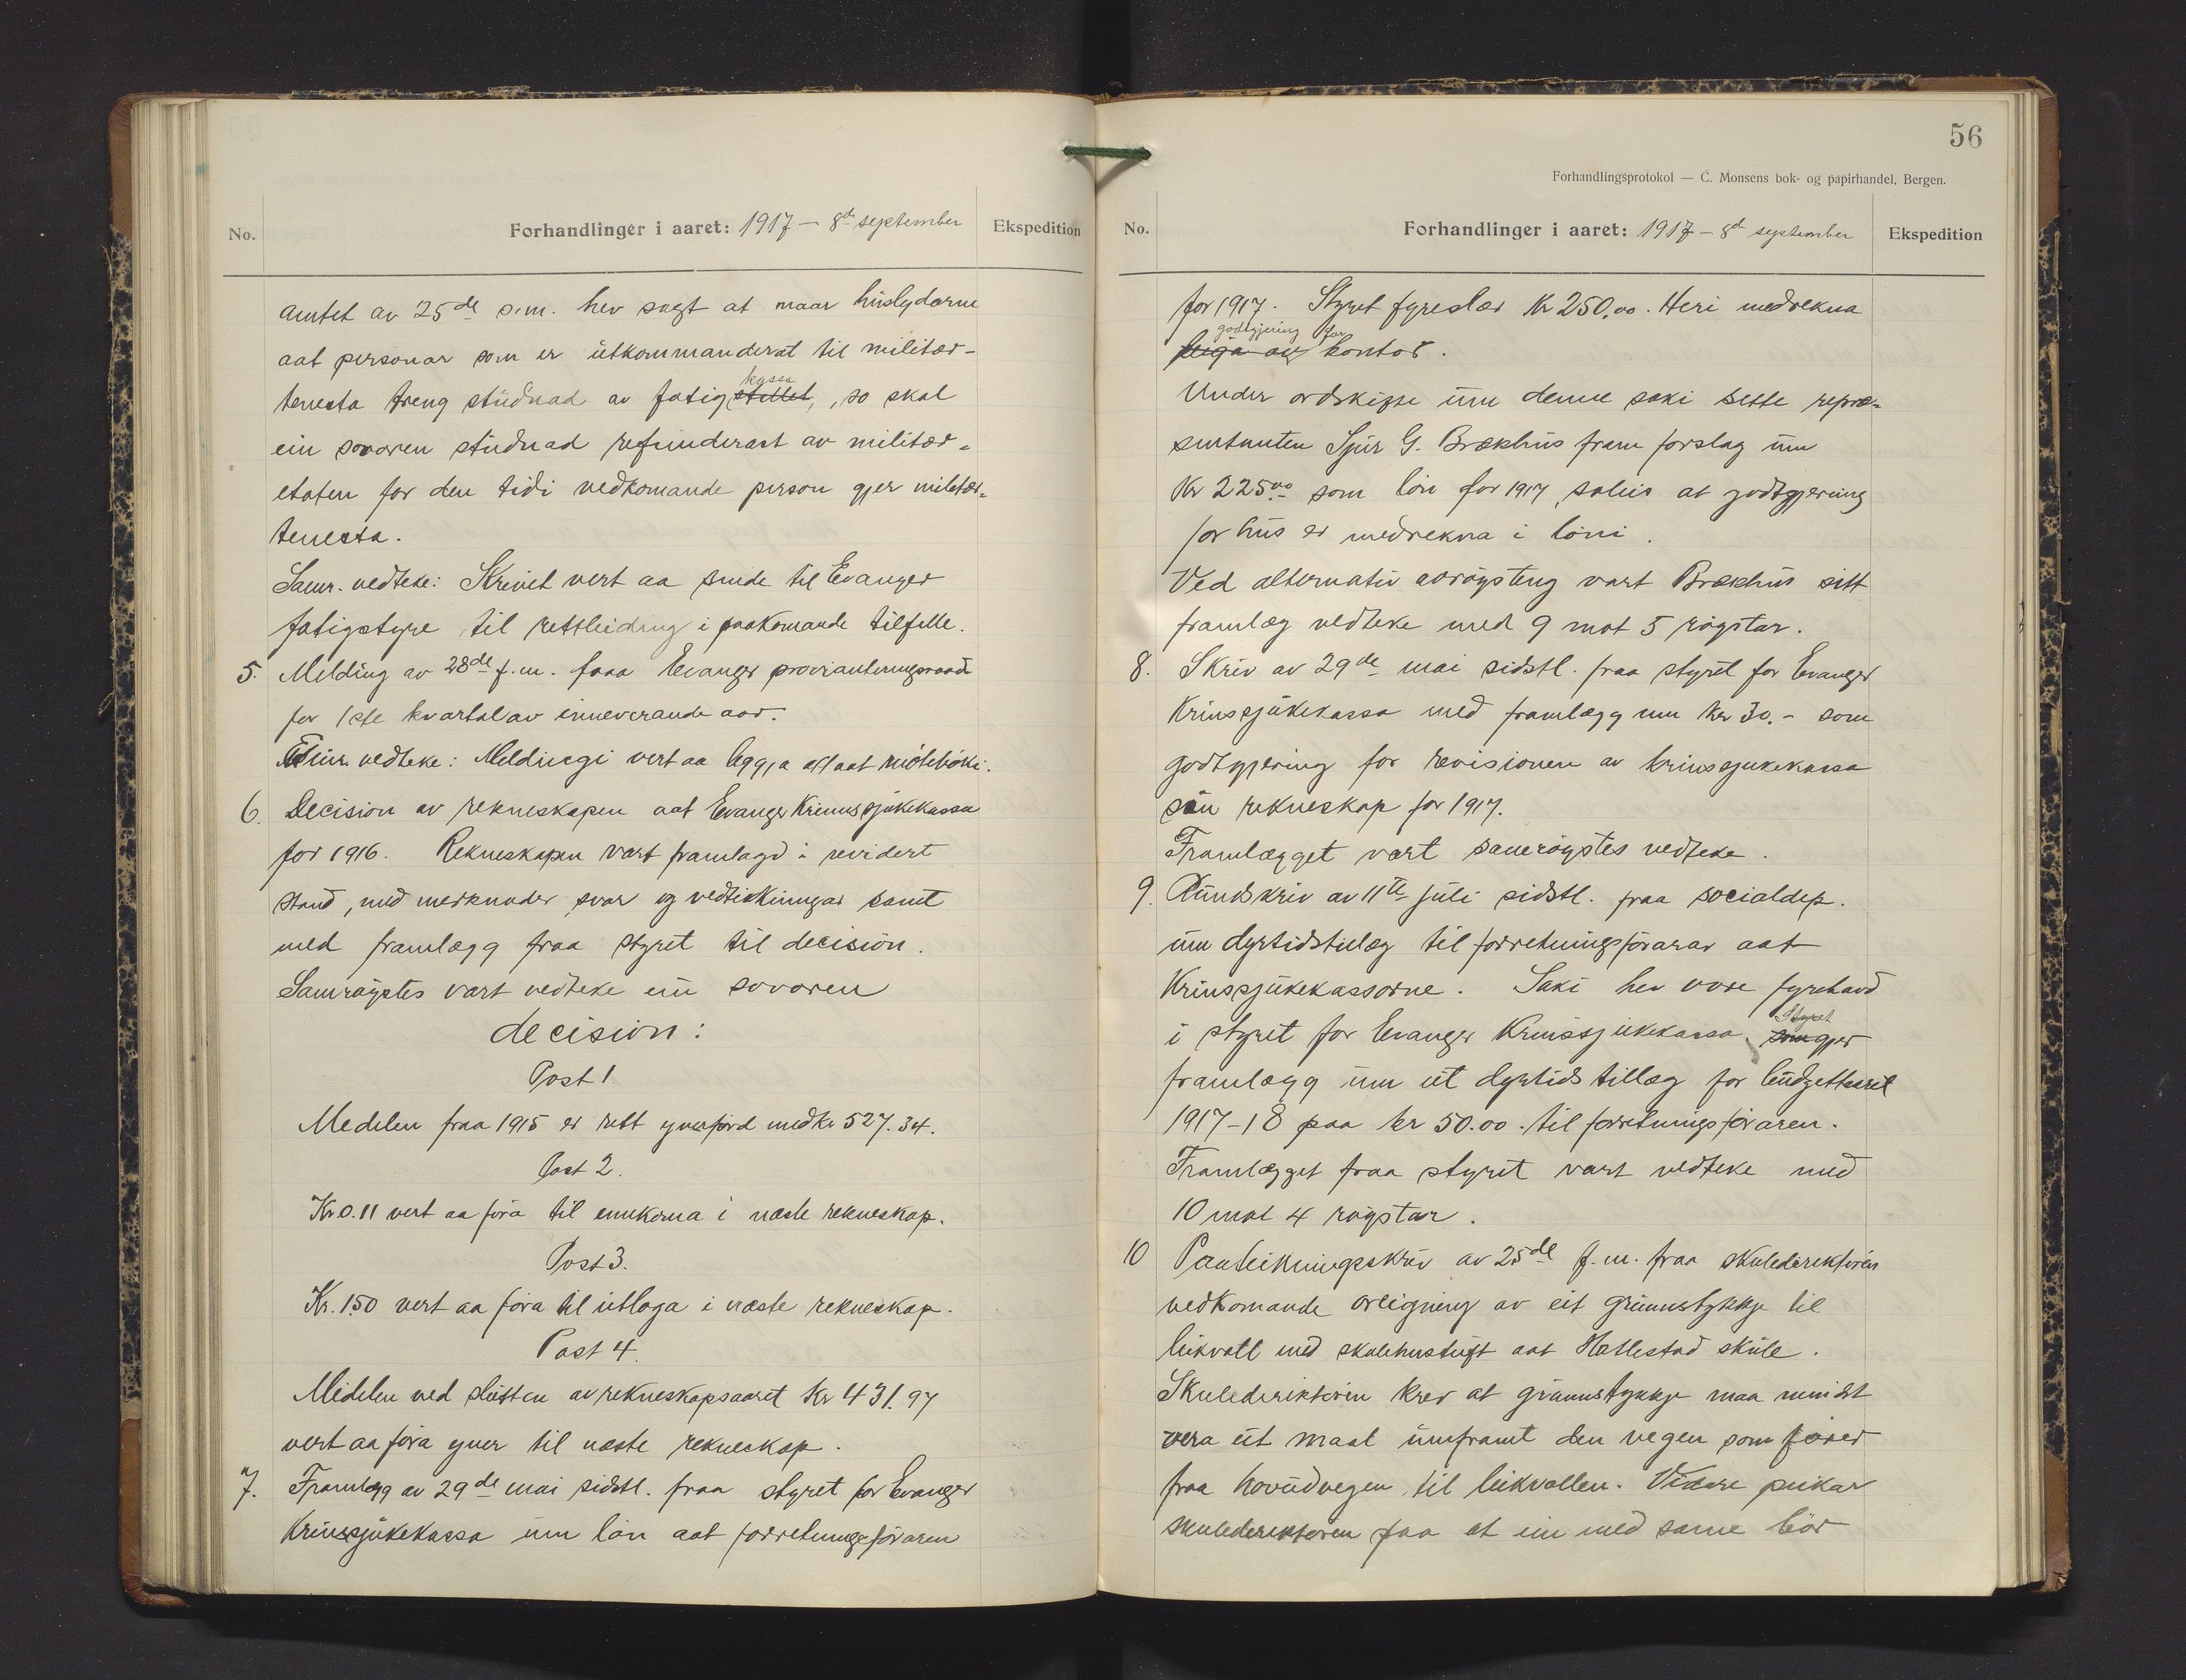 No.
Forhandlinger i aaret: 1917 — 8de september
Ekspedition
amtet av 25de s.m. hev sagt at naar huslydarne
aat personar som er utkommanderat til militær-
tenesta treng studnad av fatigstellet, kassa, so skal
ein sovoren studnad refunderast av militær-
etaten for den tidi vedkomande person gjer militær-
tenesta.
Samr. vedteke: Skrivet vert aa sende til Evanger
fatigstyre til rettleiding i paakomande tilfelle.
5. Melding av 28de f.m. fraa Evanger provianteringsraad
for 1ste kvartal av inneverande aar.
vedteke: Meldingi vert aa leggja att aat møteboki.
6. Decision av rekneskapen aat Evanger Krinssjukekassa
for 1916. Rekneskapen vart framlagd i revidert
stand, med merknader svar og vedtekningar samt
med framlegg fraa styret til decision.
Samrøystes vart vedteke ein sovoren
decision:
Post 1
Medelen fraa 1915 er rett yverførd med kr 527.34.
Post 2.
Kr 0.11 vert aa føra til innkoma i næste rekneskap.
Post 3.
Kr. 1.50 vert aa føra til utloga i næste rekneskap.
Post 4.
Midelen ved slutten av rekneskapsaaret Kr 431.97
vert aa føra yver til næste rekneskap.
7. Framlegg av 29de mai sidstl. fraa styret for Evanger
Krinssjukekassa um løn aat forretningsføraren
56
Forhandlingsprotokol — C. Monsens bok- og papirhandel, Bergen.
No.
Forhandlinger i aaret: 1917 — 8de september
Ekspedition
for 1917. Styret fyreslær Kr 250.00. Heri medrekna
godtgjering for
leiga av kontor.
Under ordskifte um denne saki sette repræ-
sentanten Sjur G. Brækhus fram forslag um
Kr 225.00 som løn for 1917, soleis at godtgjering
for hus er medrekna i løni.
Ved alternativ avrøysting vart Brækhus sitt
framlæg vedteke med 9 mot 5 røystar.
8. Skriv av 29de mai sidstl. fraa styret for Evanger
Krinssjukekassa med framlægg um kr 30.- som
godtgjering for revisionen av krinssjukekassa
sin rekneskap for 1917.
Framlægget vart samrøystes vedteke.
9. Rundskriv av 11te juli sidstl. fraa socialdep.
um dyrtidstillæg til forretningsførarar aat
Krinssjukekassorne. Saki hev vore fyrehavd
i styret for Evanger Krinssjukekassa. Styret
som gjer
framlægg um eit dyrtidstillæg for budgettaaret
1917-18 paa kr 50.00. til forretningsføraren.
Framlægget fraa styret vart vedteke med
10 mot 4 røystar.
10 Paateikningsskriv av 25de f.m. fraa skuledirektøren
vedkomande avligning av eit grunnstykkje til
leikvoll med skulehustuft aat Hatlestad skule.
Skuledirektøren krev at grunnstykkje maa minst
vera eit maal umframt den vegen som fører
fraa hovudvegen til leikvollen. Vidare peikar
skuledirektøren paa at ein med same bør